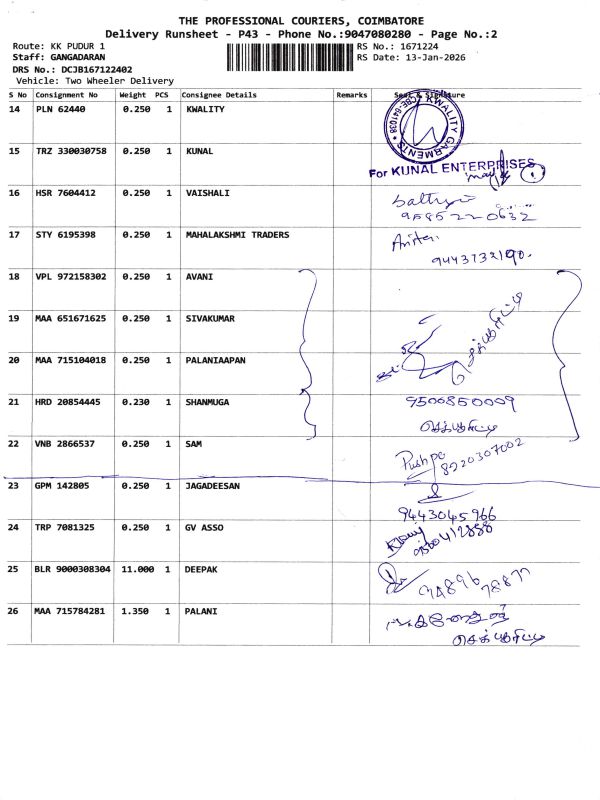 THE PROFESSIONAL COURIERS, COIMBATORE
Delivery Runsheet - P43 - Phone No.:9047080280 - Page No.:2
Route: KK PUDUR 1 RS No.: 1671224
Staff: GANGADARAN RS Date: 13-Jan-2026
DRS No.: DCJB167122402
Vehicle: Two Wheeler Delivery
S No Consignment No Weight PCS Consignee Details Remarks Seal & Signature
14 PLN 62440 0.250 1 KWALITY
KWALITY GARMENTS * CBE-641038 *
15 TRZ 330030758 0.250 1 KUNAL
For KUNAL ENTERPRISES
16 HSR 7604412 0.250 1 VAISHALI
9585220632
17 STY 6195398 0.250 1 MAHALAKSHMI TRADERS
9443732190.
18 VPL 972158302 0.250 1 AVANI
19 MAA 651671625 0.250 1 SIVAKUMAR
20 MAA 715104018 0.250 1 PALANIAAPAN
21 HRD 20854445 0.230 1 SHANMUGA
9500850009
செக்யூரிட்டி
22 VNB 2866537 0.250 1 SAM
Pushpa
8220307002
23 GPM 142805 0.250 1 JAGADEESAN
9443045966
24 TRP 7081325 0.250 1 GV ASSO
25 BLR 9000308304 11.000 1 DEEPAK
26 MAA 715784281 1.350 1 PALANI
செக்யூரிட்டி